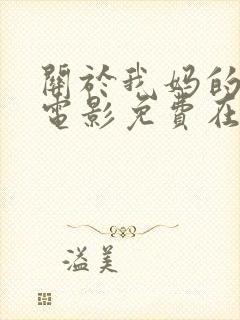 關於我媽的
電影免費在
溢美